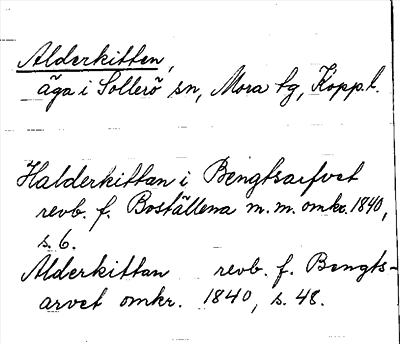 Alderkitten,
äga i Sollerö sn, Mora tg, Kopp.l.
Halderkittan i Bengtsarfvet
revb. f. Boställena m.m. omkr. 1840,
s. 6.
Alderkittan revb. f. Bengts-
arvet omkr. 1840, s. 48.